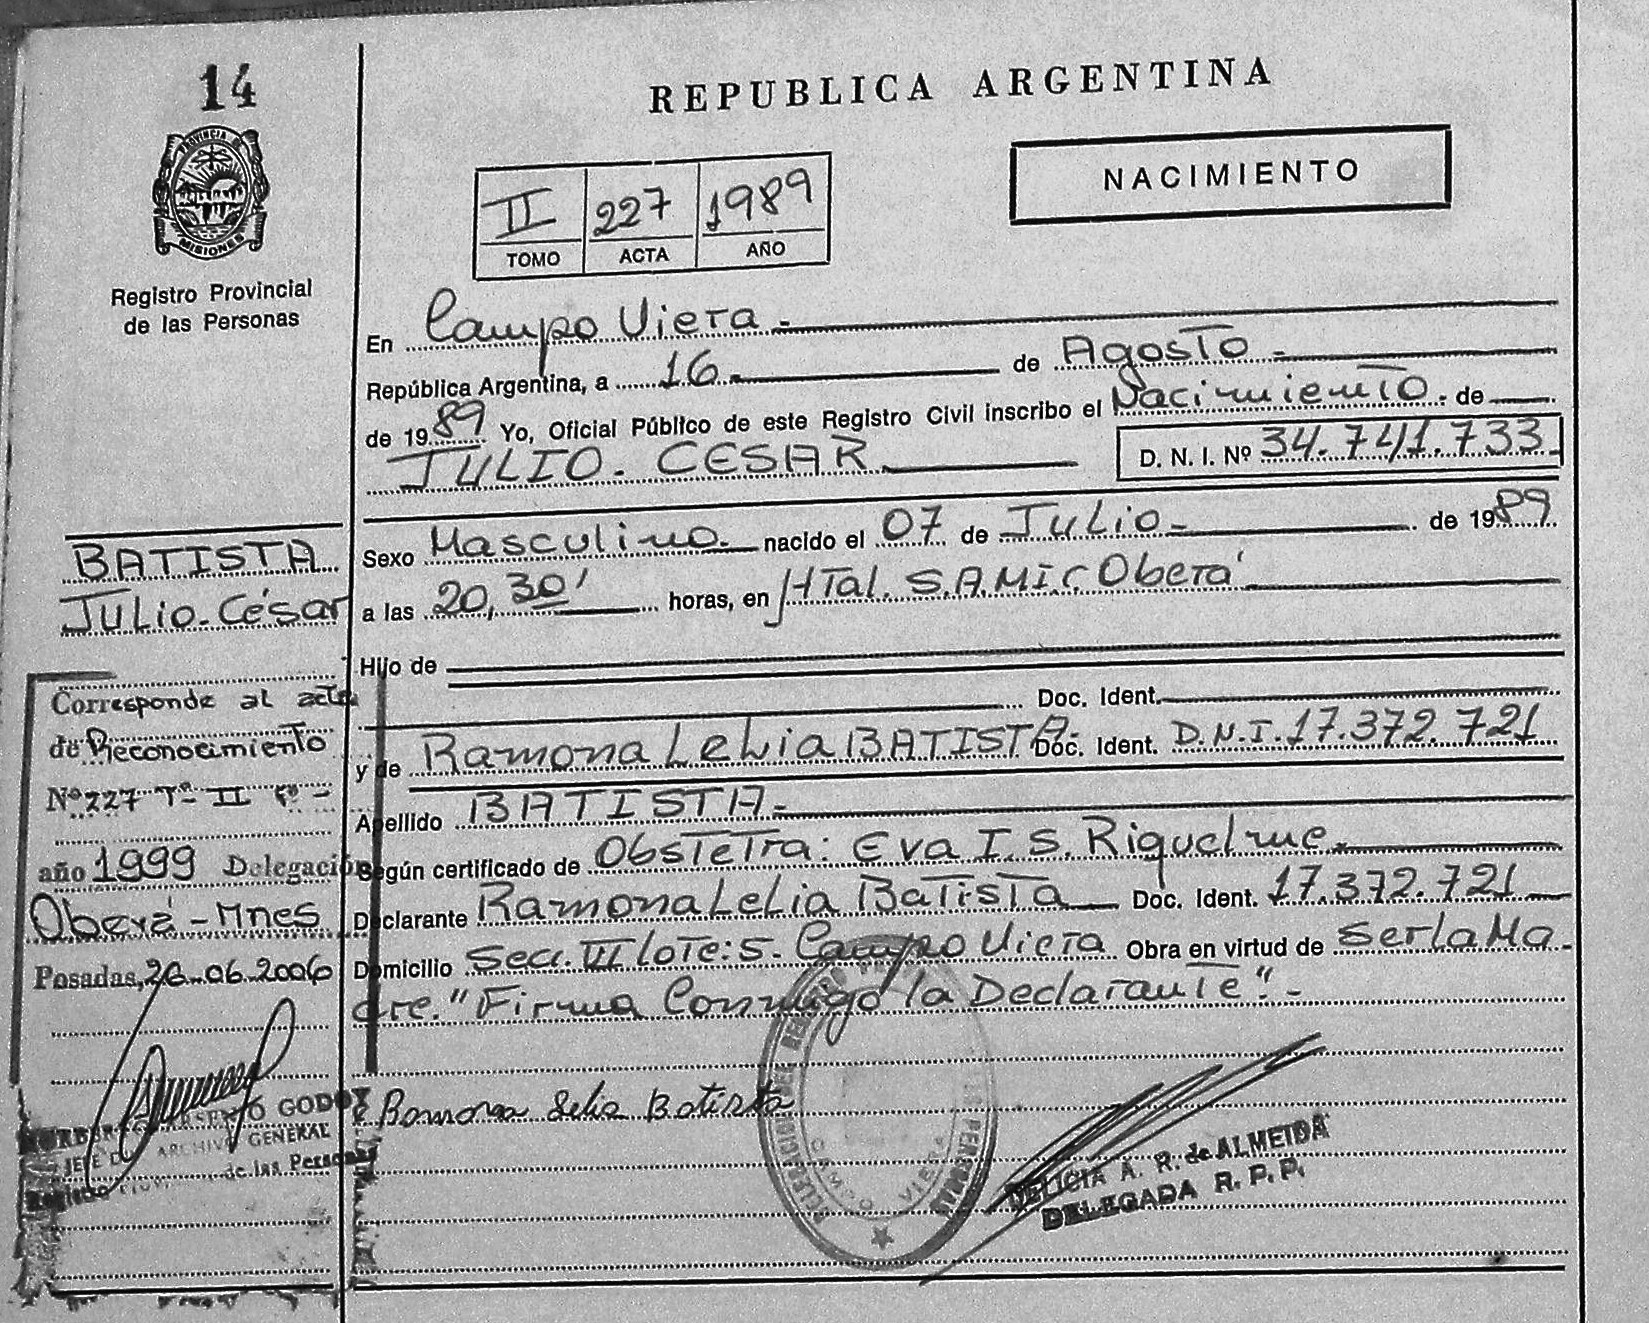 14
PROVINCIA DE
MISIONES
Registro Provincial
de las Personas
REPUBLICA ARGENTINA
NACIMIENTO
II 227 1989
TOMO ACTA AÑO
En Campo Viera.-
República Argentina, a 16.- de Agosto.-
de 1989 Yo, Oficial Público de este Registro Civil inscribo el Nacimiento. de
JULIO. CESAR D. N. I. Nº 34.741.733
Sexo Masculino. nacido el 07 de Julio.- de 1989
a las 20,30' horas, en HTal. S.A.M.I.C. Oberá
Hijo de
Doc. Ident.
y de Ramona Lelia BATISTA.- Doc. Ident. D.N.I. 17.372.721
Apellido BATISTA.-
Según certificado de Obstetra: Eva I. S. Riquelme.
Declarante Ramona Lelia Batista Doc. Ident. 17.372.721
Domicilio Secc. III lote: 5. Campo Viera Obra en virtud de Ser la Ma-
dre. "Firma Conmigo la Declarante".-
Ramona Lelia Batista
DELICIA A. R. de ALMEIDA
DELEGADA R. P. P.
CAMPO VIERA
BATISTA
Julio César
Corresponde al acta
de Reconocimiento
Nº 227 Tº II Fº -
año 1999 Delegación
Oberá - Mnes
Posadas, 26.06.2006
GODOY
JEFE ARCHIVO GENERAL
de las Personas